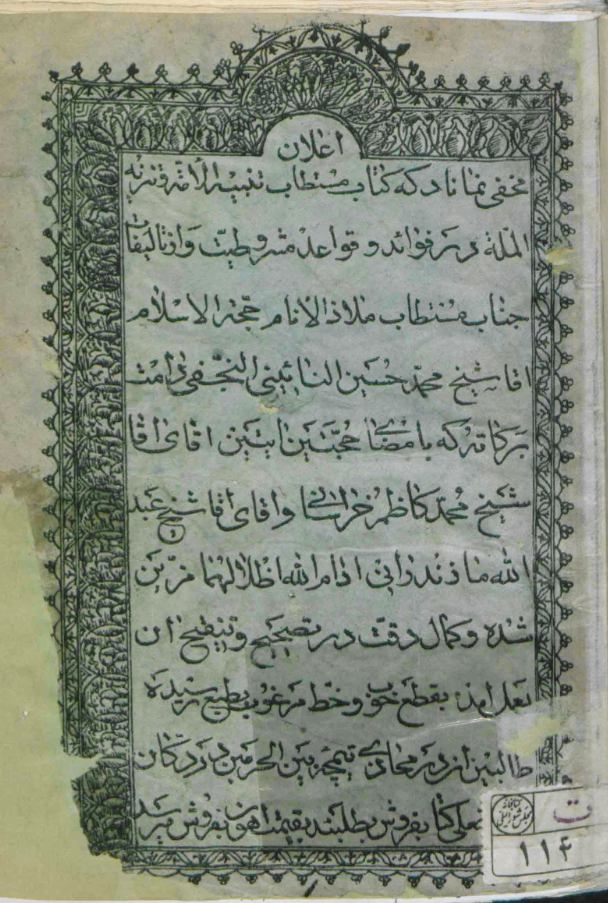 اعلان
مخفی نماناد که کتاب مستطاب تنبیه الأمة و تنزیه
الملة در فوائد و قواعد مشروطیت و از تألیفات
جناب مستطاب ملاذ الانام حجة الاسلام
اقا شیخ محمد حسین النائینی النجفی دامت
برکاته که بامضای حجتین ایتین اقای اقا
شیخ محمد کاظم خراسانی و اقای اقا شیخ عبد
الله مازندرانی ادام الله اظلالهما مزین
شده و کمال دقت در تصحیح و تنقیح ان
بعمل امده بقطع خوب و خط مرغوب بطبع رسیده
طالبین از در محاذی تیمچه بین الحرمین در دکان
کتابفروش بطلبند بقیمت اهون بفروش میرسد
ت
۱۱۴